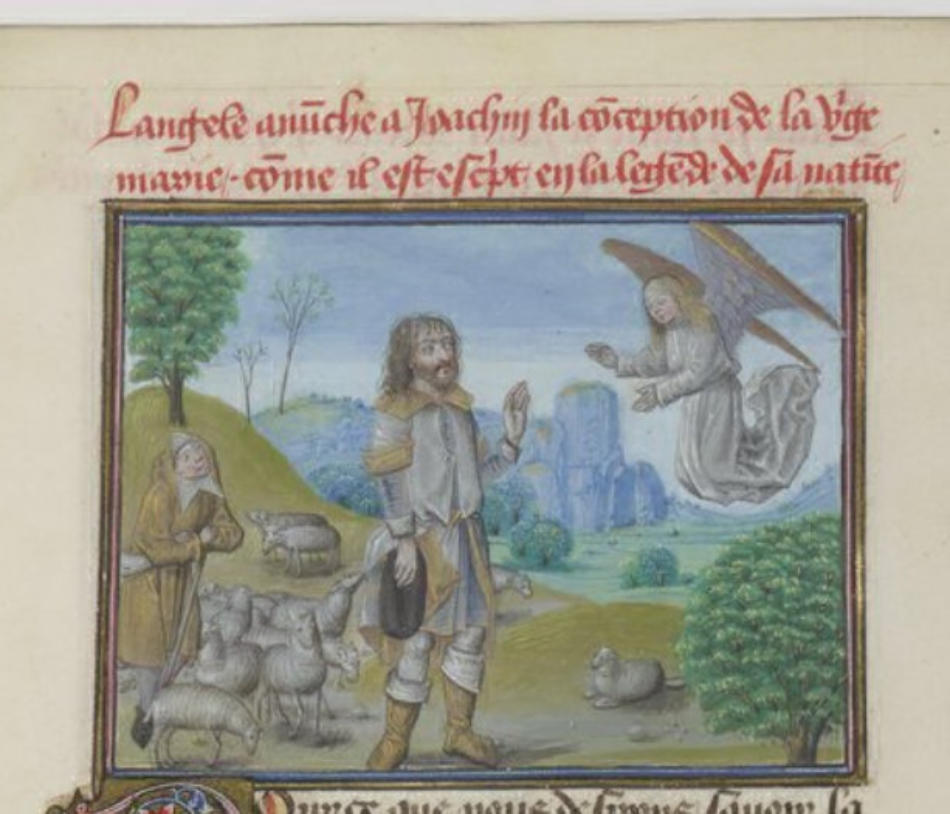 Langele anūche a Joachin la cōception de la v'ge
marie, cōme il est esc'pt en la legēde de sa natiūte
Pource que nous desirons sauoir la